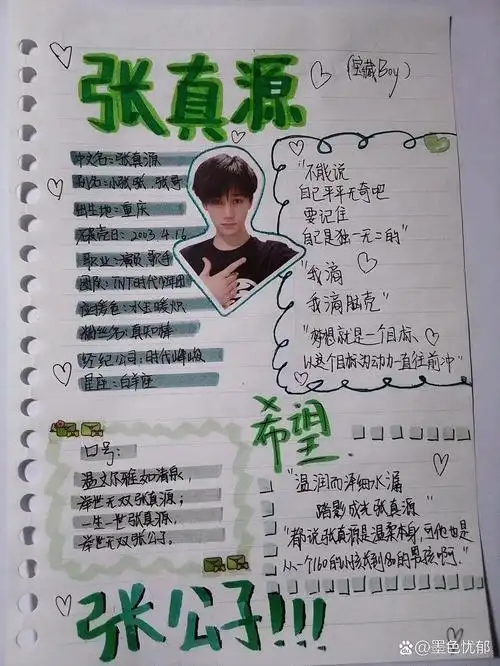 张真源
(宝藏Boy)
中文名：张真源
别名：小张张、张哥
出生地：重庆
出生日：2003.4.16
职业：演员 歌手
团队：TNT时代少年团
应援色：水玉暖炽
粉丝名：真知棒
经纪公司：时代峰峻
星座：白羊座
“不能说
自己平平无奇吧
要记住
自己是独一无二的”
“我滴
我滴脑壳”
“梦想就是一个目标、
以这个目标为动力一直往前冲”
希望
口号：
温文尔雅如清泉，
举世无双张真源；
一生一世张真源，
举世无双张公子。
“温润而泽细水漏
踏影成光张真源”
“都说张真源是温柔本身，可他也是
从一个160的小孩长到180的男孩啊。”
张公子!!!
@墨色忧郁